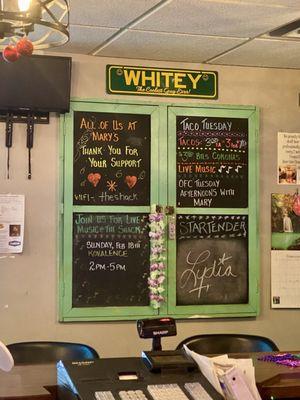 WHITEY
The Coolest Guy Ever!
All of Us at
Mary's
Thank You For
Your Support
theshack
Join Us for Live
Music @ The Shack
Sunday, Feb 18th
Kovalence
2pm-5pm
Taco Tuesday
Tacos
Coronas
Live Music
OFC Tuesday
Afternoons with
Mary
Startender
Lydia
SHARP